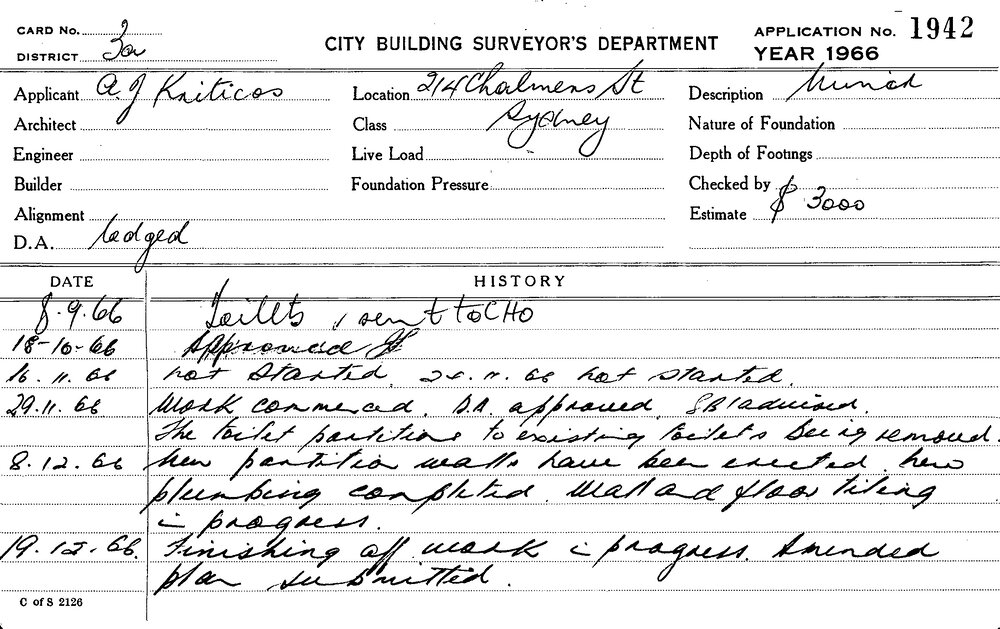 CARD No. 2
DISTRICT 3a
CITY BUILDING SURVEYOR'S DEPARTMENT
APPLICATION No. 1942
YEAR 1966
Applicant A. J Kriticos
Location 214 Chalmers St
Sydney
Description
Architect
Class
Nature of Foundation
Engineer
Live Load
Depth of Footings
Builder
Foundation Pressure
Checked by
Alignment
Estimate $ 3000
D.A. lodged
DATE HISTORY
8.9.66 Toilets, sent to CHO
18-10-66 Approved
16.11.66 not started. 24.11.66 not started.
29.11.66 Work commenced. D.A. approved. SBI advised.
The toilet partitions to existing toilets being removed.
8.12.66 New partition walls have been erected. new
plumbing completed. Wall and floor tiling
in progress.
19.12.66. Finishing off work in progress. Amended
plan submitted.
C of S 2126